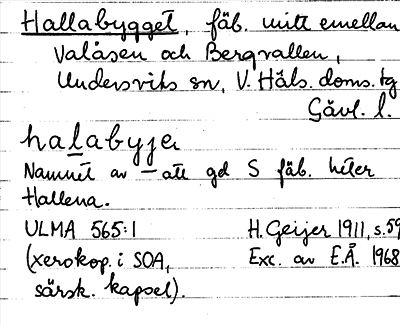 Hallabygget, fäb. mitt emellan
Valåsen och Bergvallen,
Undersviks sn, V. Häls. doms. tg
Gävl. l.
halabyje
Namnet av – att gd S fäb. heter
Hallena.
ULMA 565:1 H. Geijer 1911, s. 59
(xerokop. i SOA, Exc. av E.Å. 1968
särsk. kapsel).